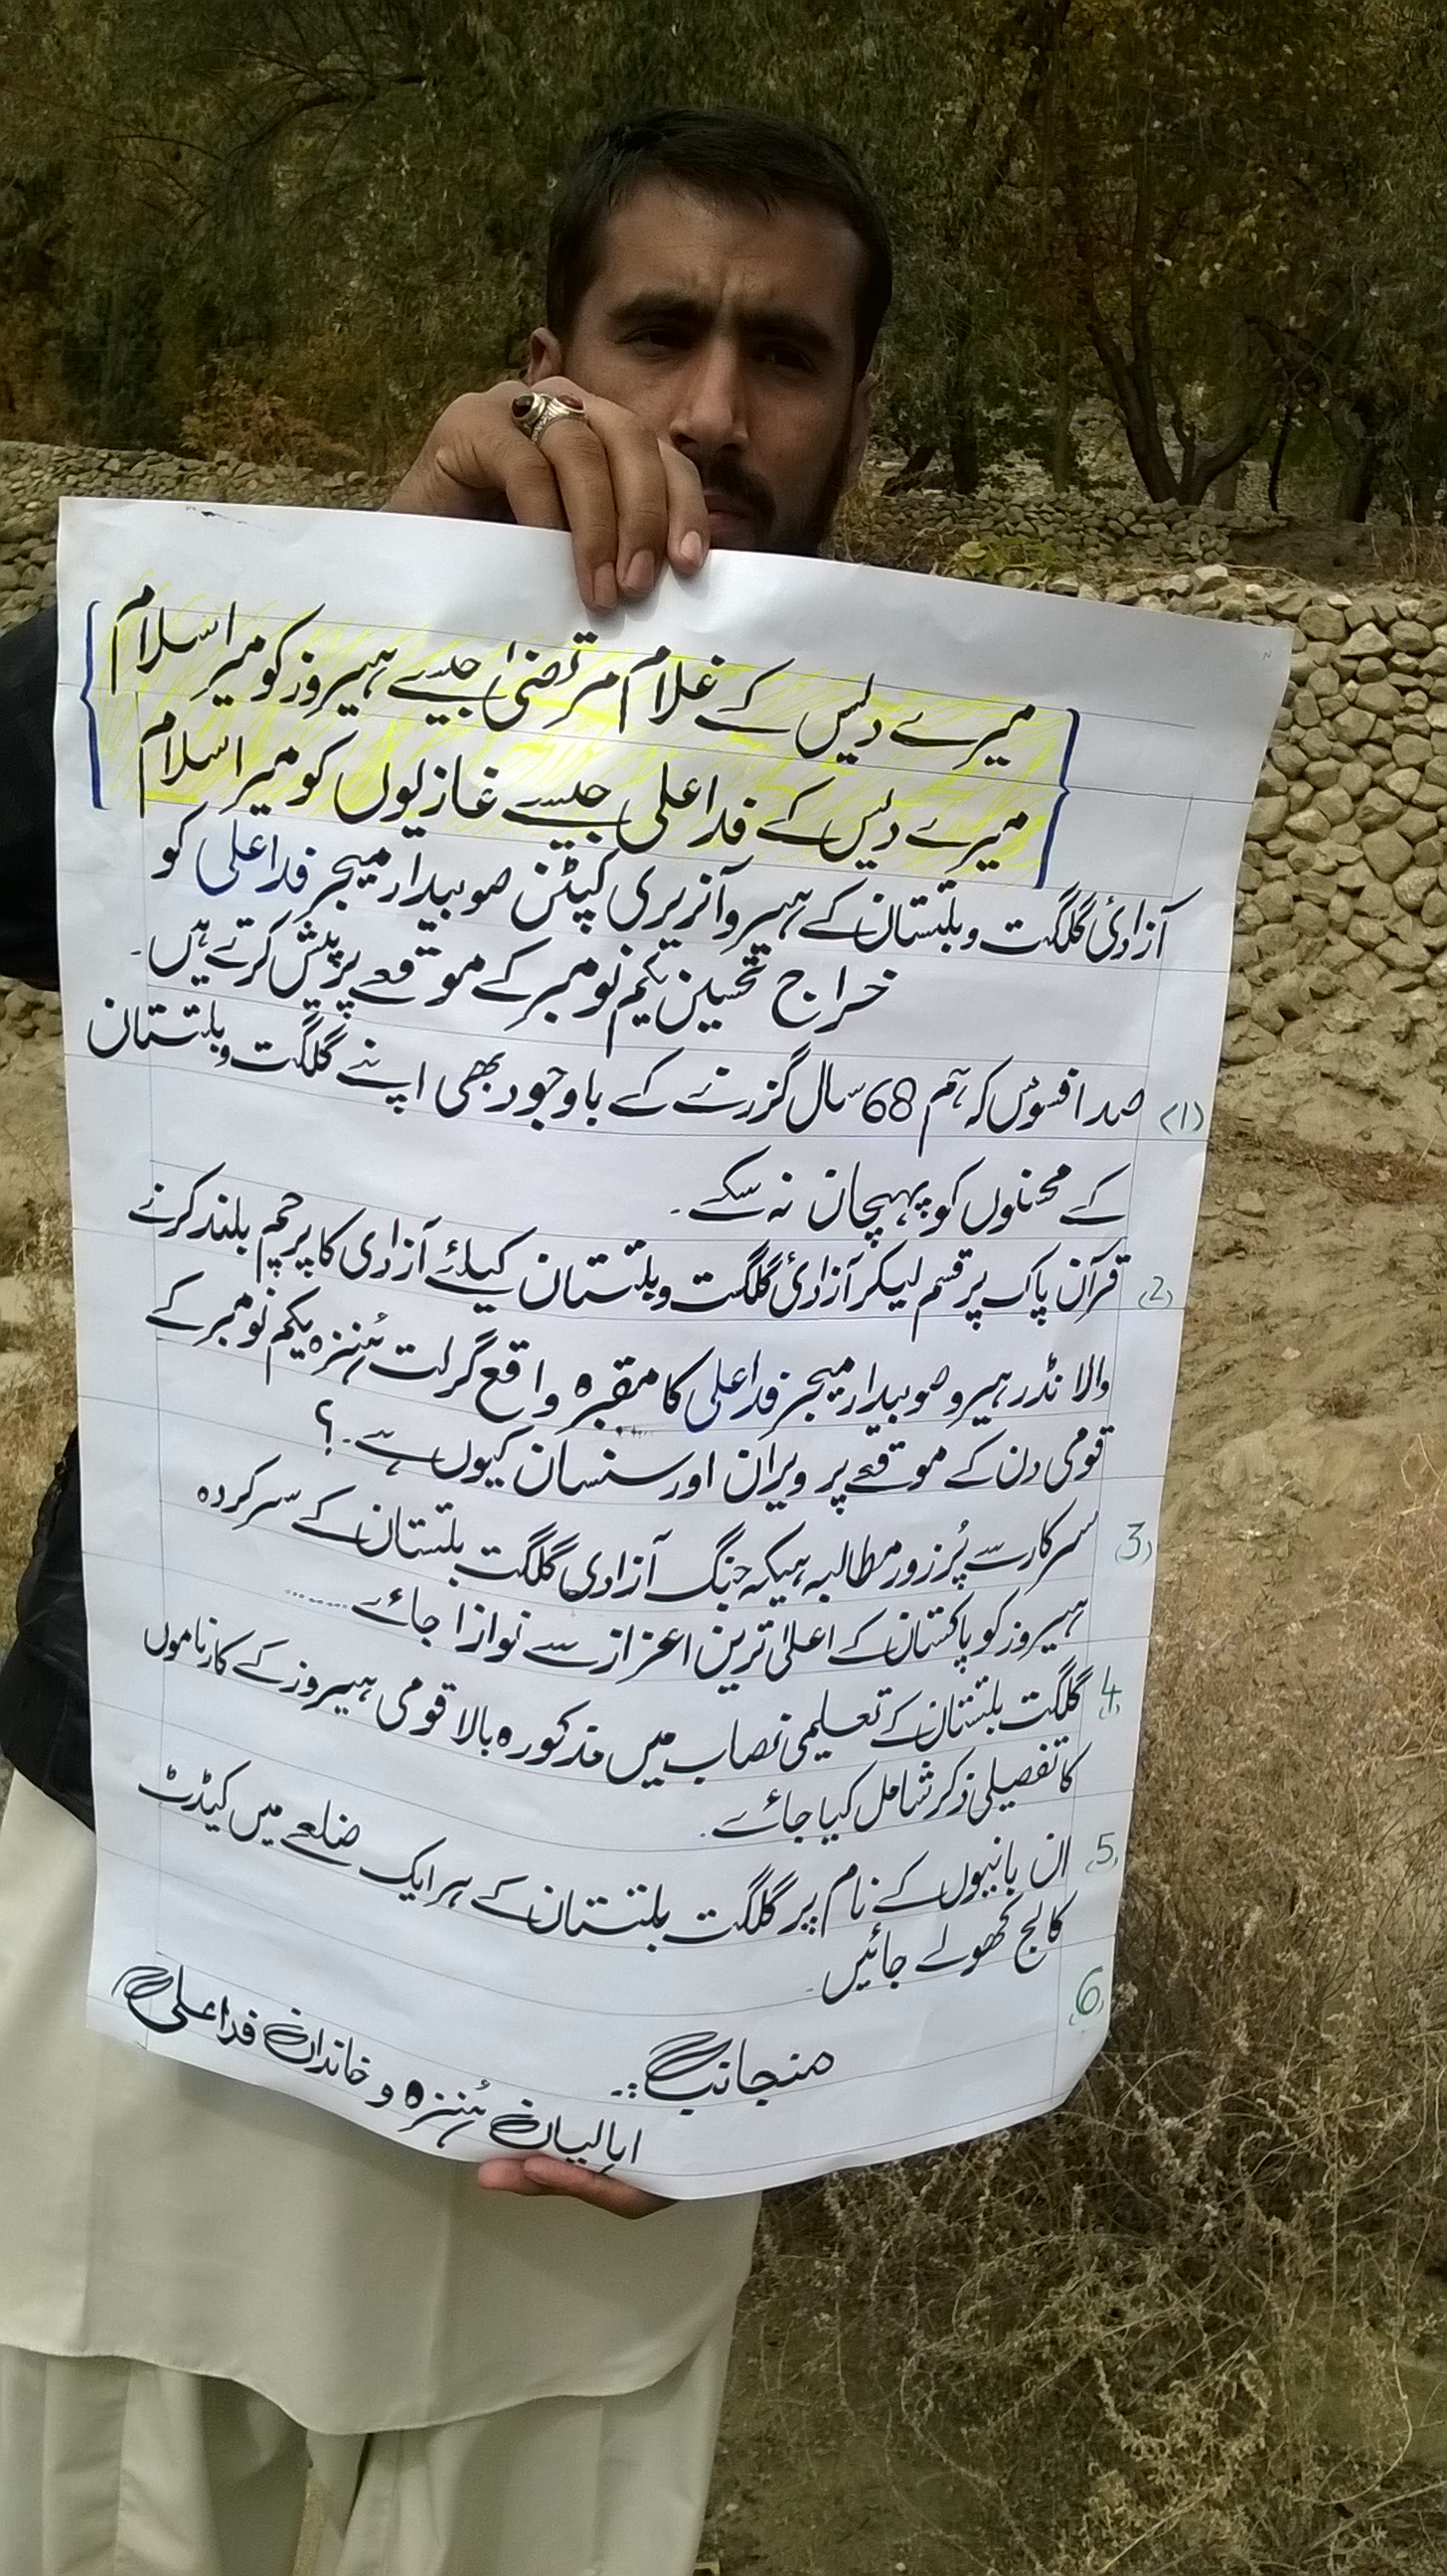 میرے دیس کے غلام مرتضیٰ جیسے ہیروز کو میرا سلام
میرے دیس کے فدا علی جیسے غازیوں کو میرا سلام
آزادئ گلگت و بلتستان کے ہیرو آنریری کپٹن صوبیدار میجر فدا علی کو
خراج تحسین یکم نومبر کے موقعے پر پیش کرتے ہیں۔
(1) صد افسوس کہ ہم 68 سال گزرنے کے باوجود بھی اپنے گلگت و بلتستان
کے محسنوں کو پہچان نہ سکے۔
(2) قرآن پاک پر قسم لیکر آزادئ گلگت و بلتستان کیلئے آزادی کا پرچم بلند کرنے
والا نڈر ہیرو صوبیدار میجر فدا علی کا مقبرہ واقع گرلت ہُنزہ یکم نومبر کے
قومی دن کے موقعے پر ویران اور سنسان کیوں ہے۔؟
(3) سرکار سے پُرزور مطالبہ ہیکہ جنگ آزادی گلگت بلتستان کے سرکردہ
ہیروز کو پاکستان کے اعلیٰ ترین اعزاز سے نوازا جائے......
(4) گلگت بلتستان کے تعلیمی نصاب میں مذکورہ بالا قومی ہیروز کے کارناموں
کا تفصیلی ذکر شامل کیا جائے۔
(5) ان بانیوں کے نام پر گلگت بلتستان کے ہر ایک ضلعے میں کیڈٹ
کالج کھولے جائیں۔
(6)
منجانب:۔
اہالیان ہُنزہ و خاندان فدا علی